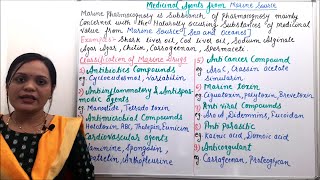 Medicinal Agents from Marine Source
Marine Pharmacognosy is Substances of Pharmacognosy mainly
Concerned with the Naturally occuring Substances of medicinal
value from Marine Source [Sea and Oceans]
Example:- Shark liver oil, Cod liver oil, Sodium Alginate
Agar Agar, Chitin, Carrageenan, Spermaceti.
Classification of Marine Drugs
1) Antibiotics Compounds
eg. Cycloeudesmol, Variabilin
2) Antiinflammatory & Antispas-
modic agents
eg. Manoalide, Tetrodotoxin
3) Antimicrobial Compounds
Eunicin
Cardiovascular agents
Spongosin,
5) Anti Cancer Compound
eg. Crassin acetate
Simularin
6) Marine toxin
eg. Ciguatoxin, Palytoxin, Brevetoxin
7) Anti Viral Compounds
eg. Ara A, Didemnins, Fucoidan
8) Anti Parasitic
eg. Kainic acid, Domoic acid
9) Anticoagulant
eg. Carrageenan,